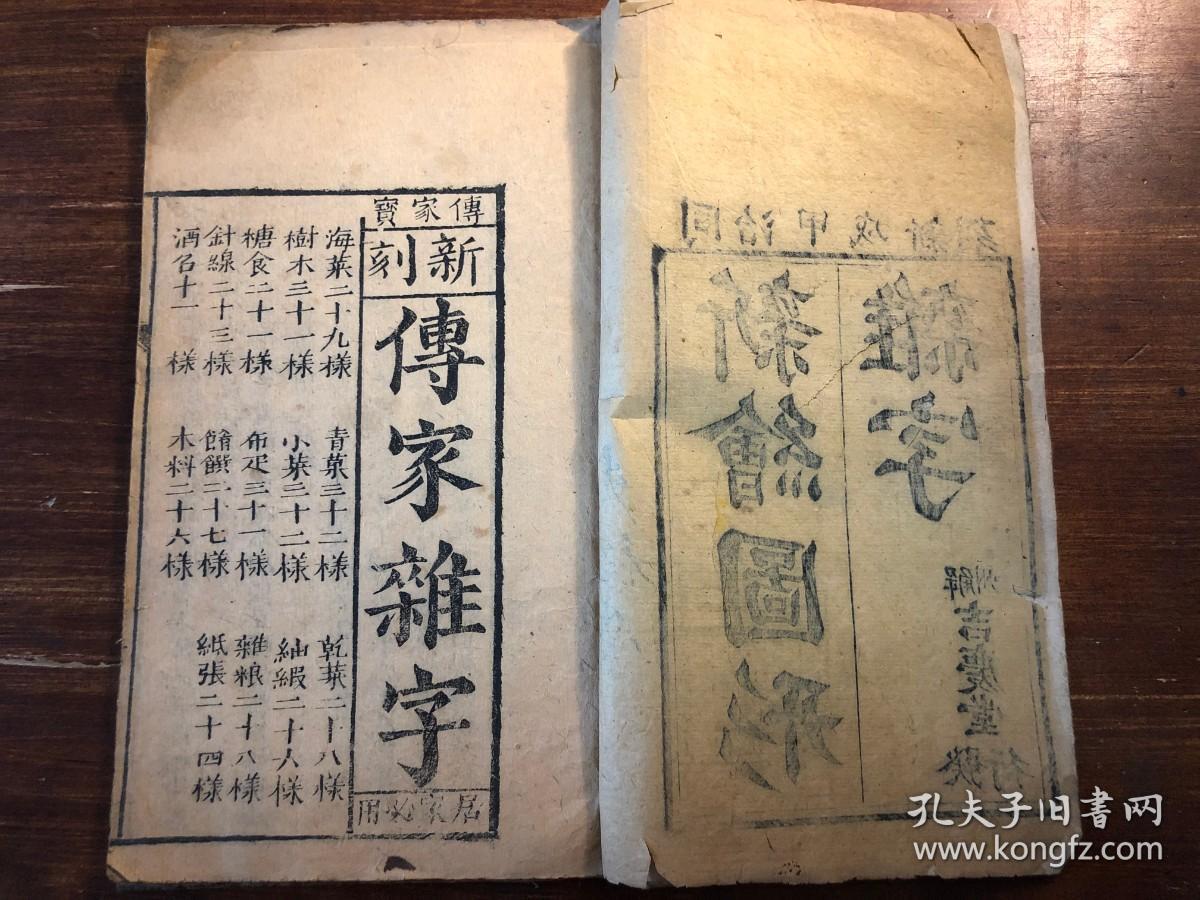 同治甲戌新刻
新繪圖形
雜字
解州
吉慶堂
發行
傳家寶
新刻
傳家雜字
居家必用
海菜二十九樣 青菜三十二樣 乾菜二十八樣
樹木三十一樣 小菜三十二樣 紬緞二十六樣
糖食二十一樣 布疋三十一樣 雜粮二十八樣
針線二十三樣 餚饌二十七樣 紙張二十四樣
酒名十一樣 木料二十六樣
孔夫子旧书网
www.kongfz.com